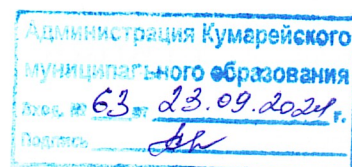 Администрация Кумарейского
муниципального образования
63 от 23.09.2024 г.
Подпись